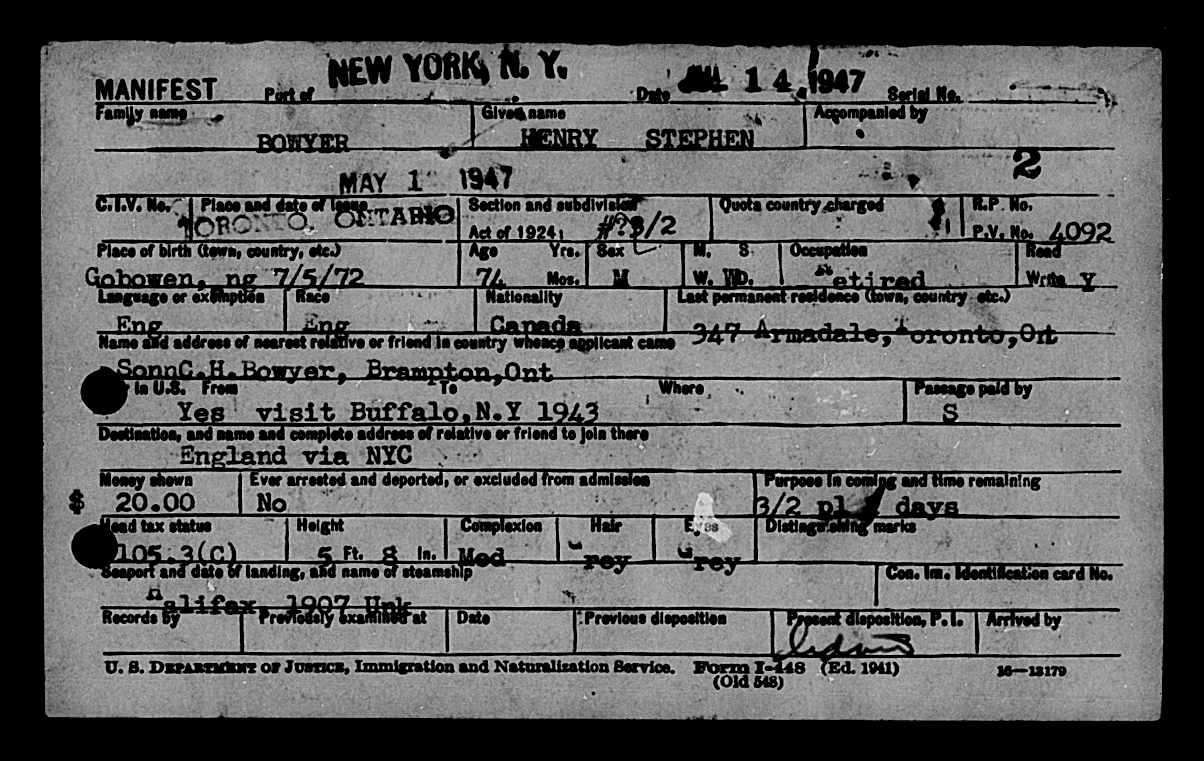 MANIFEST Port of NEW YORK, N. Y. Date 1 4 1947 Serial No.
Family name Given name Accompanied by
BOWYER HENRY STEPHEN
MAY 1 1947 2
C.I.V. No. Place and date of issue Section and subdivision Quota country charged R.P. No.
TORONTO, ONTARIO Act of 1924: #?3/2 P.V. No. 4092
Place of birth (town, country, etc.) Age Yrs. Sex M. S. Occupation Read
Gobowen, ng 7/5/72 74 Mos. M W. WD. etired Write Y
Language or exemption Race Nationality Last permanent residence (town, country etc.)
Eng Eng Canada 347 Armadale, Toronto,Ont
Name and address of nearest relative or friend in country whence applicant came
SonnC.H.Bowyer, Brampton,Ont
in U.S. From To Where Passage paid by
Yes visit Buffalo,N.Y 1943 S
Destination, and name and complete address of relative or friend to join there
England via NYC
Money shown Ever arrested and deported, or excluded from admission Purpose in coming and time remaining
$ 20.00 No 3/2 pl days
Head tax status Height Complexion Hair Eyes Distinguishing marks
105.3(C) 5 Ft. 8 In. Med Grey Grey
Seaport and date of landing, and name of steamship Con. Im. Identification card No.
Halifax, 1907 Unk
Records by Previously examined at Date Previous disposition Present disposition, P. I. Arrived by
U. S. DEPARTMENT OF JUSTICE, Immigration and Naturalization Service. Form I-448 (Ed. 1941) 16—13179
(Old 548)